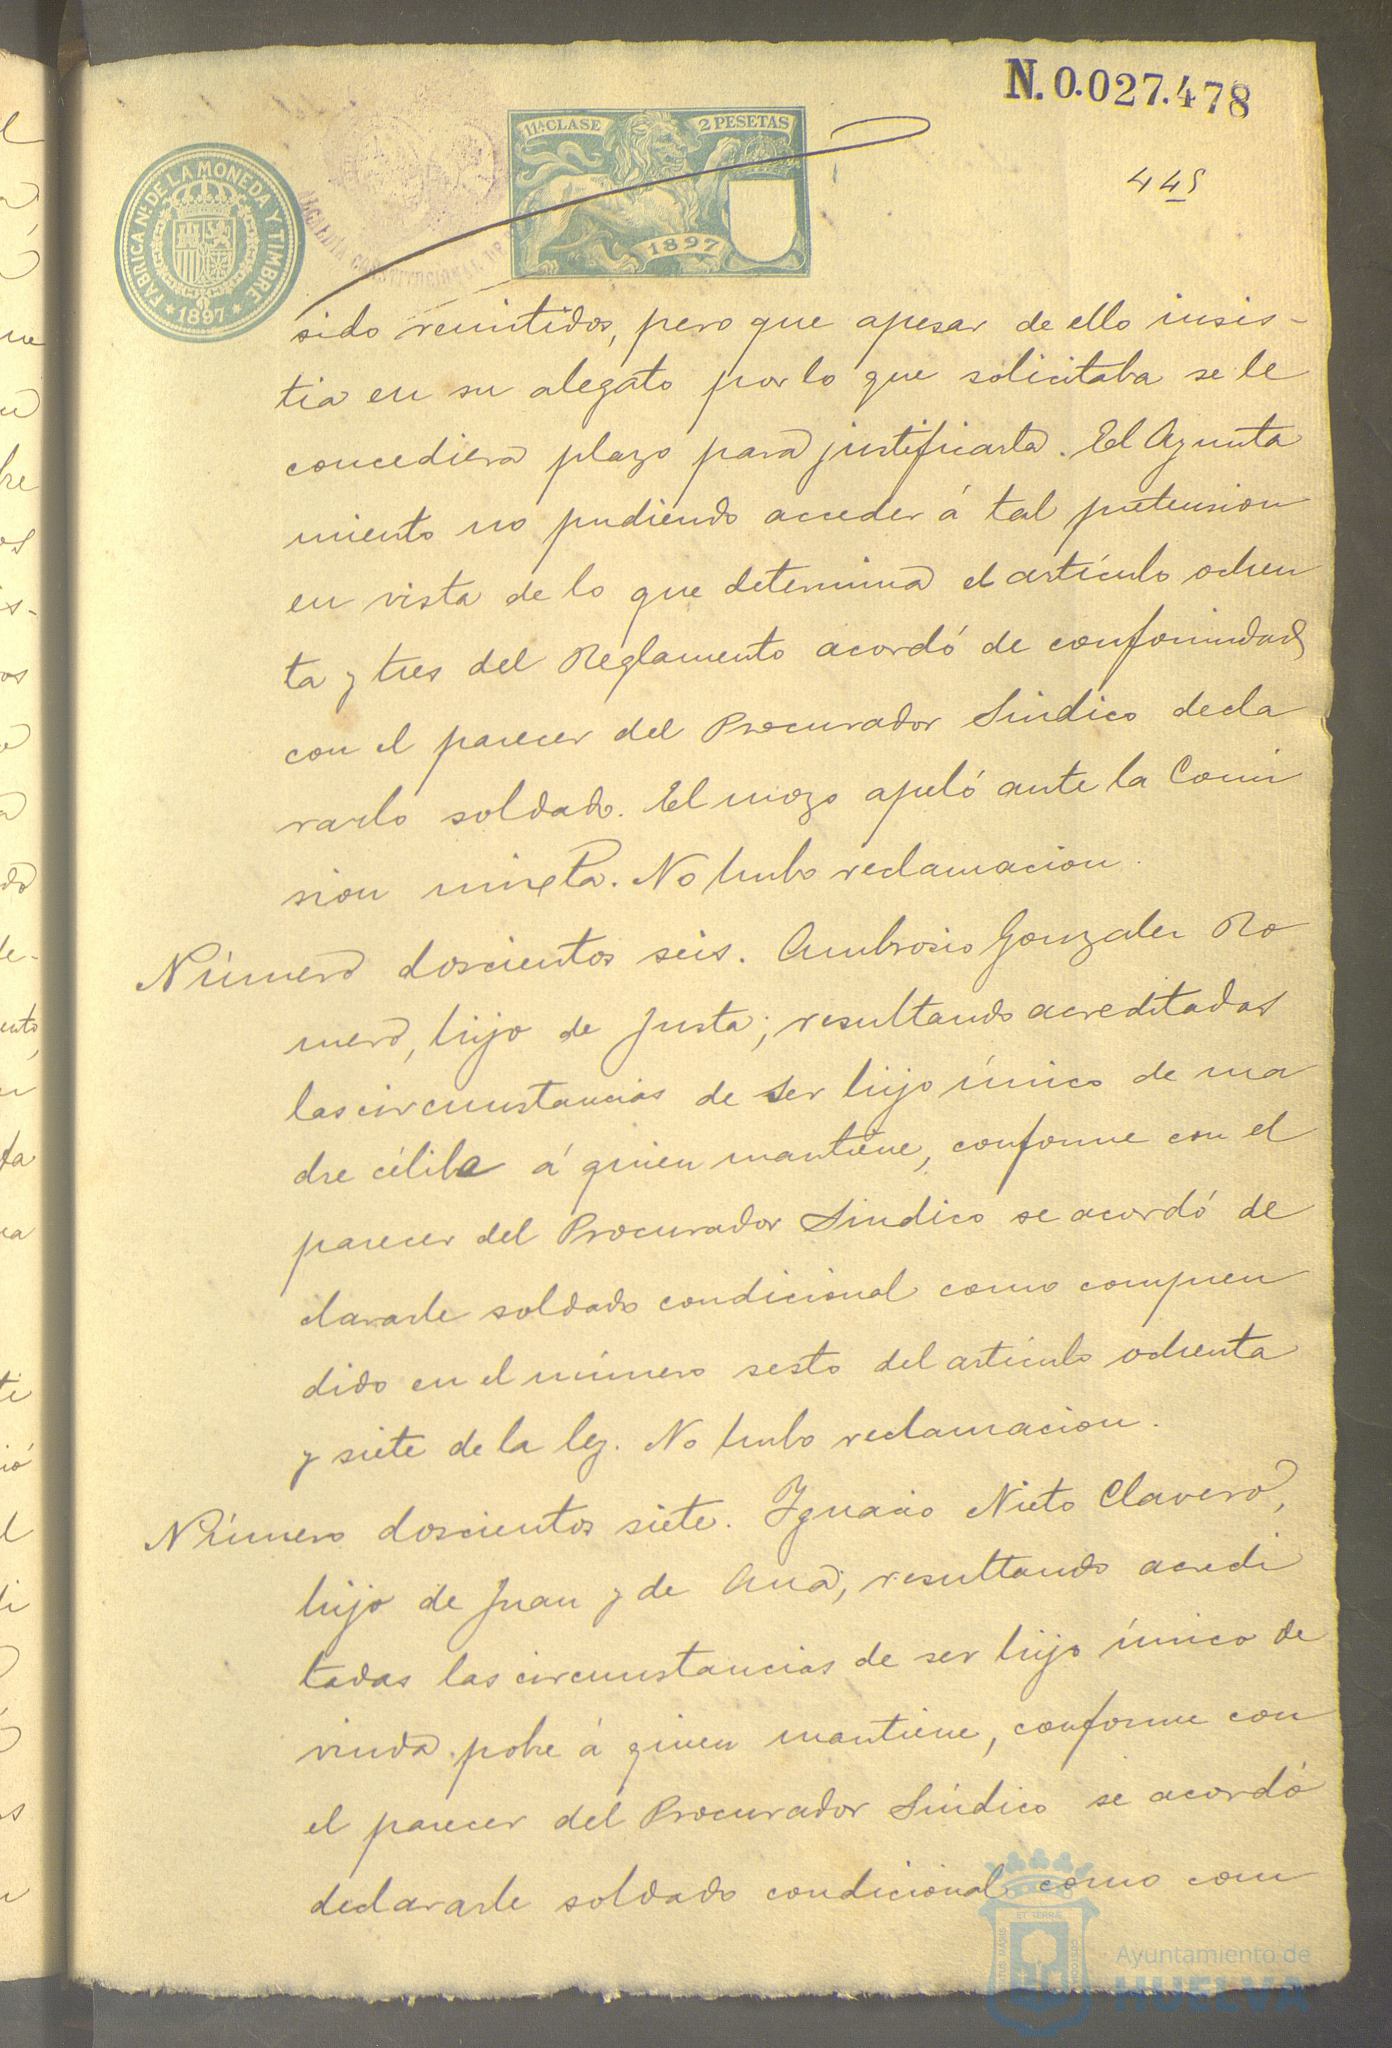 N. 0.027.478
11ª CLASE 2 PESETAS
1897
FABRICA Nˡ DE LA MONEDA Y TIMBRE
* 1897 *
ALCALDIA CONSTITUCIONAL DE
445
sido remitidos, pero que apesar de ello insis-
tia en su alegato por lo que solicitaba se le
concediera plazo para justificarla. El Ayunta
miento no pudiendo acceder á tal pretension
en vista de lo que determina el artículo ochen
ta y tres del Reglamento acordó de conformidad
con el parecer del Procurador Sindico decla
rarlo soldado. El mozo apeló ante la Comi
sion mixta. No hubo reclamacion.
Número doscientos seis. Ambrosio Gonzalez Ro
mero, hijo de Justa; resultando acreditadas
las circunstancias de ser hijo único de ma
dre célibe á quien mantiene, conforme con el
parecer del Procurador Sindico se acordó de
clararle soldado condicional como compren
dido en el número sesto del artículo ochenta
y siete de la ley. No hubo reclamacion.
Número doscientos siete. Ignacio Nieto Clavero,
hijo de Juan y de Ana; resultando acredi
tadas las circunstancias de ser hijo único de
viuda pobre á quien mantiene, conforme con
el parecer del Procurador Síndico se acordó
declararle soldado condicional como com
Ayuntamiento de
HUELVA